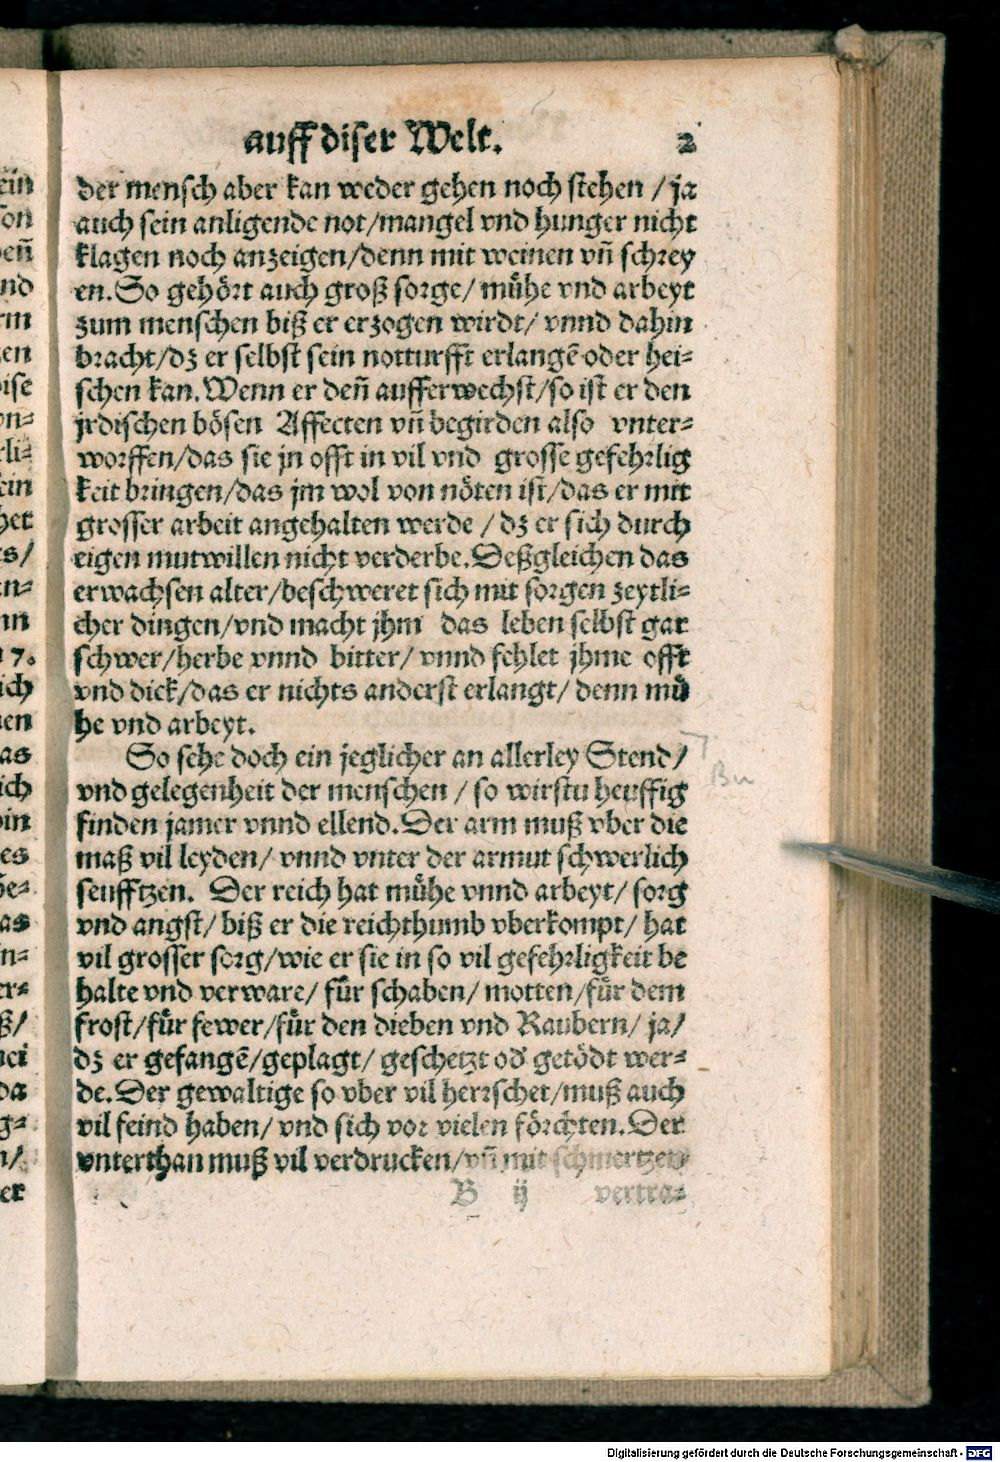 auff diser Welt. 2
der mensch aber kan weder gehen noch stehen / ja
auch sein anligende not/mangel vnd hunger nicht
klagen noch anzeigen/denn mit weinen vñ schrey
en. So gehört auch groß sorge/ mühe vnd arbeyt
zum menschen biß er erzogen wirdt/ vnnd dahin
bracht/dz er selbst sein notturfft erlangē oder hei-
schen kan. Wenn er deñ aufferwechst/so ist er den
jrdischen bösen Affecten vñ begirden also vnter-
worffen/das sie jn offt in vil vnd grosse gefehrlig
keit bringen/das jm wol von nöten ist/das er mit
grosser arbeit angehalten werde / dz er sich durch
eigen mutwillen nicht verderbe. Deßgleichen das
erwachsen alter/beschweret sich mit sorgen zeytli-
cher dingen/vnd macht jhm das leben selbst gar
schwer/herbe vnnd bitter/ vnnd fehlet jhme offt
vnd dick/das er nichts anderst erlangt/ denn mü
he vnd arbeyt.
So sehe doch ein jeglicher an allerley Stend/
vnd gelegenheit der menschen / so wirstu heuffig
finden jamer vnnd ellend. Der arm muß vber die
maß vil leyden/ vnnd vnter der armut schwerlich
seufftzen. Der reich hat mühe vnnd arbeyt/ sorg
vnd angst/ biß er die reichthumb vberkompt/ hat
vil grosser sorg/wie er sie in so vil gefehrligkeit be
halte vnd verware/ für schaben/ motten/für dem
frost/für fewer/für den dieben vnd Raubern/ ja/
dz er gefangē/geplagt/ geschetzt od' getödt wer-
de. Der gewaltige so vber vil herrschet/muß auch
vil feind haben/ vnd sich vor vielen förchten. Der
vnterthan muß vil verdrucken/vñ mit schmertzen
B ij vertra-
Digitalisierung gefördert durch die Deutsche Forschungsgemeinschaft - DFG